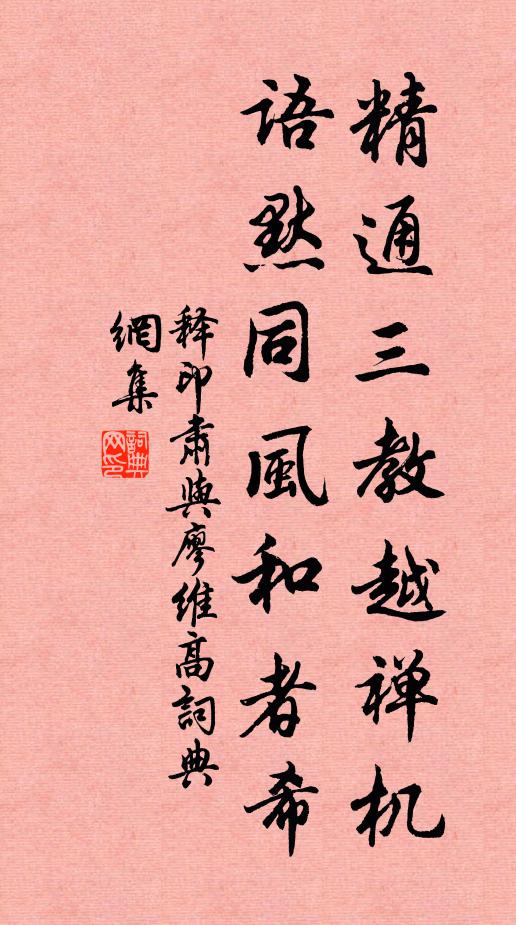 精通三教越禅机
语默同風和者希
释印肃與廖维高詞典
網集
詞典
网印